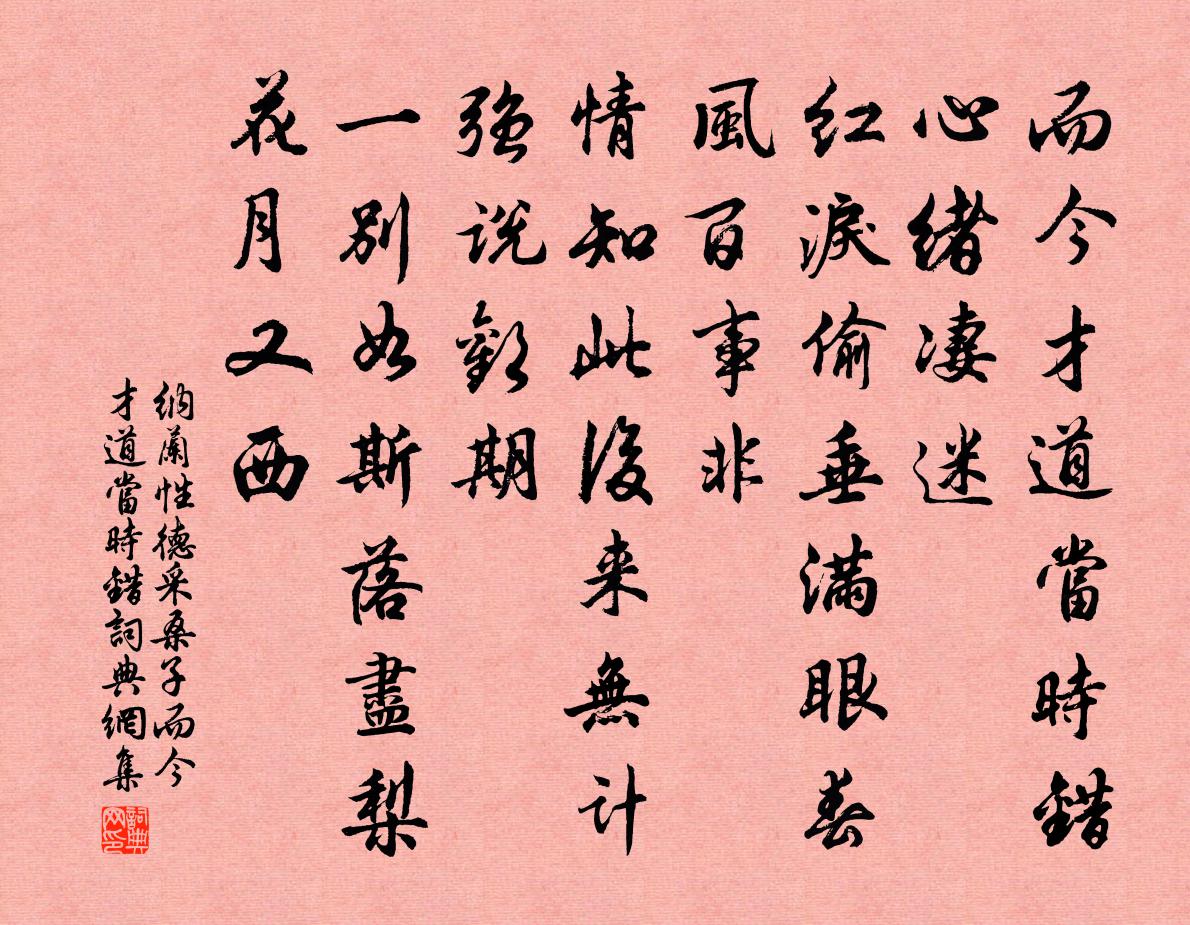 而今才道當時錯
心緒凄迷
紅淚偷垂滿眼春
風百事非
情知此後来無計
強說歡期
一別如斯落盡梨
花月又西
納蘭性德采桑子而今
才道當時錯詞典網集
詞典
网印